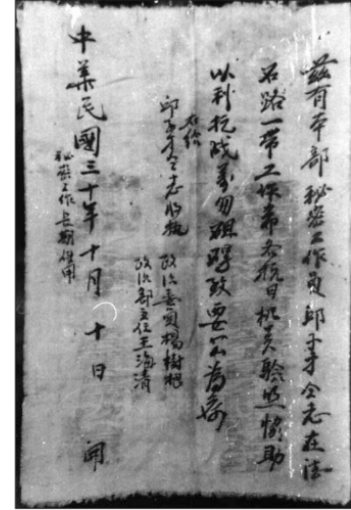 兹有本部秘密工作員邱子才仝志在法
召路一带工作希各抗日机关驗照協助
以利抗战幸勿阻碍致要公為荷
右给
邱子才仝志收执
政治委員楊樹根
政治部主任王海清
中華民國三十年十月十日
秘密工作長期使用